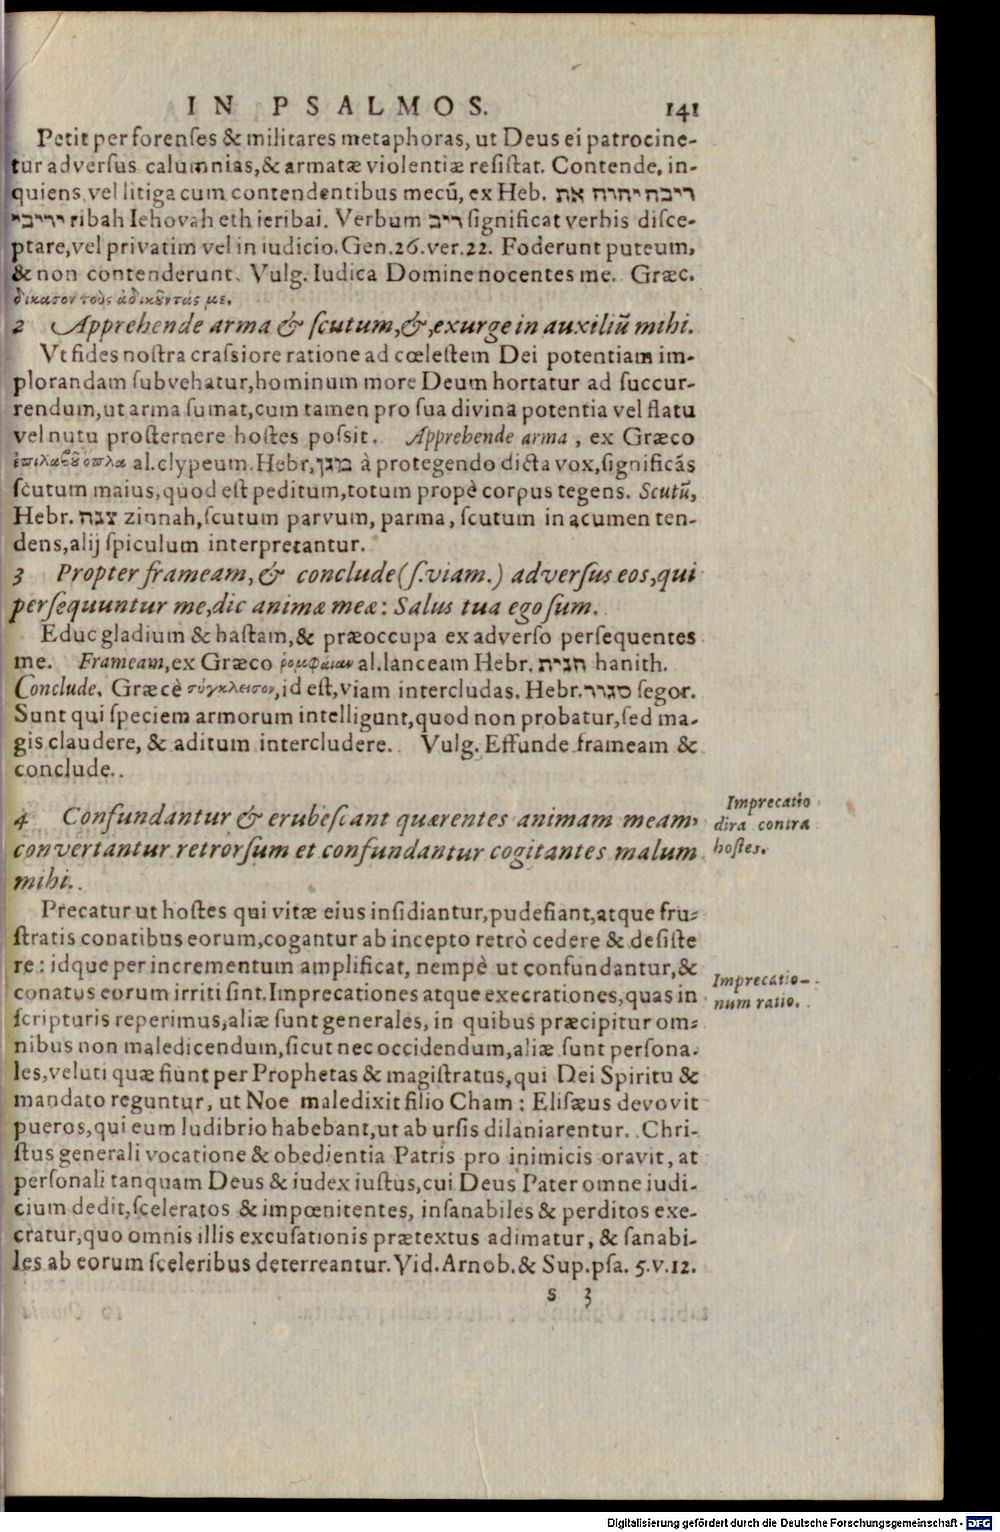 IN PSALMOS. 141
Petit per forenſes & militares metaphoras, ut Deus ei patrocine-
tur adverſus calumnias,& armatæ violentiæ reſiſtat. Contende, in-
quiens, vel litiga cum contendentibus mecũ, ex Heb. ריבה יהוה את
יריבי ribah Iehovah eth ieribai. Verbum ריב ſignificat verbis diſce-
ptare, vel privatim vel in iudicio. Gen.26.ver.22. Foderunt puteum,
& non contenderunt. Vulg. Iudica Domine nocentes me. Græc.
δίκασον τοὺς ἀδικοῦντάς με.
2 Apprehende arma & ſcutum,&,exurge in auxiliũ mihi.
Vt fides noſtra craſsiore ratione ad cœleſtem Dei potentiam im-
plorandam ſubvehatur, hominum more Deum hortatur ad ſuccur-
rendum, ut arma ſumat, cum tamen pro ſua divina potentia vel flatu
vel nutu proſternere hoſtes poſsit. Apprehende arma, ex Græco
ἐπιλαβοῦ ὅπλα al. clypeum. Hebr. מגן à protegendo dicta vox, ſignificãs
ſcutum maius, quod eſt peditum, totum propè corpus tegens. Scutũ,
Hebr. צנה zinnah, ſcutum parvum, parma, ſcutum in acumen ten-
dens, alij ſpiculum interpretantur.
3 Propter frameam, & conclude (ſ. viam.) adverſus eos, qui
perſequuntur me, dic animæ meæ: Salus tua ego ſum.
Educ gladium & haſtam, & præoccupa ex adverſo perſequentes
me. Frameam, ex Græco ῥομφαίαν al. lanceam Hebr. חנית hanith.
Conclude. Græcè σύγκλεισον, id eſt, viam intercludas. Hebr. סגור ſegor.
Sunt qui ſpeciem armorum intelligunt, quod non probatur, ſed ma-
gis claudere, & aditum intercludere. Vulg. Effunde frameam &
conclude.
4 Confundantur & erubeſcant quærentes animam meam,
convertantur retrorſum et confundantur cogitantes malum
mihi.
Imprecatio
dira contra
hoſtes.
Precatur ut hoſtes qui vitæ eius inſidiantur, pudefiant, atque fru-
ſtratis conatibus eorum, cogantur ab incepto retrò cedere & deſiſte
re: idque per incrementum amplificat, nempè ut confundantur, &
conatus eorum irriti ſint. Imprecationes atque execrationes, quas in
ſcripturis reperimus, aliæ ſunt generales, in quibus præcipitur om-
nibus non maledicendum, ſicut nec occidendum, aliæ ſunt perſona-
les, veluti quæ fiunt per Prophetas & magiſtratus, qui Dei Spiritu &
mandato reguntur, ut Noe maledixit filio Cham: Eliſæus devovit
pueros, qui eum ludibrio habebant, ut ab urſis dilaniarentur. Chri-
ſtus generali vocatione & obedientia Patris pro inimicis oravit, at
perſonali tanquam Deus & iudex iuſtus, cui Deus Pater omne iudi-
cium dedit, ſceleratos & impœnitentes, inſanabiles & perditos exe-
cratur, quo omnis illis excuſationis prætextus adimatur, & ſanabi-
les ab eorum ſceleribus deterreantur. Vid. Arnob. & Sup. pſa. 5.v.12.
Imprecatio-
num ratio.
s 3
Digitalisierung gefördert durch die Deutsche Forschungsgemeinschaft - DFG